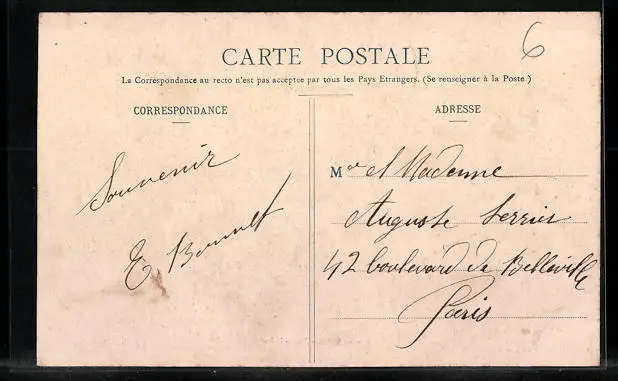 6
CARTE POSTALE
La Correspondance au recto n'est pas acceptee par tous les Pays Etrangers. (Se renseigner à la Poste.)
CORRESPONDANCE
ADRESSE
Souvenir
E. Bonnet
M et Madame
Auguste
42 boulevard de Belleville
Paris